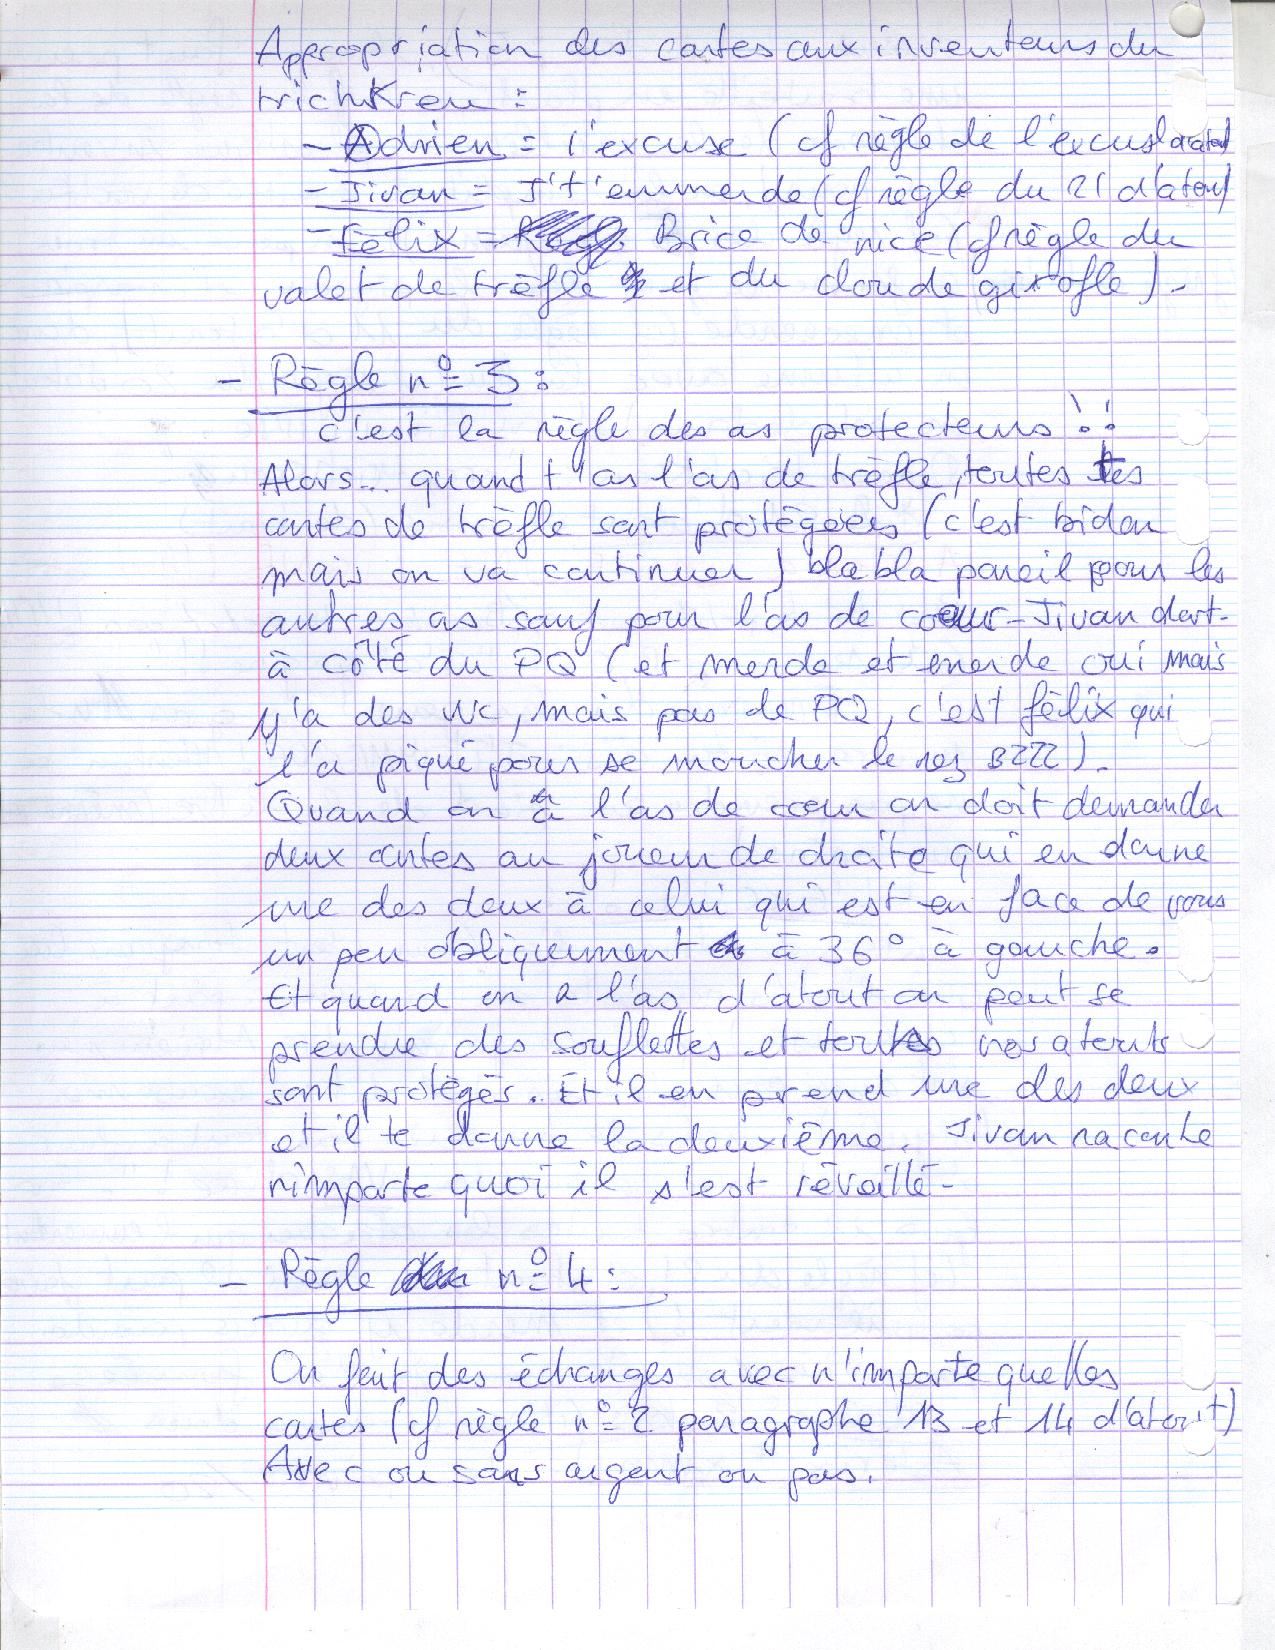 Appropriation des cartes aux inventeurs du
trichKreu :
- Adrien = l'excuse (cf règle de l'excuse
- Jivan = J't'emmerde (cf règle du 21 d'atout)
- Félix = Brice de nice (cf règle du
valet de trèfle et du clou de girofle).
- Règle n° 3 :
c'est la règle des as protecteurs !!
Alors... quand t'as l'as de trèfle, toutes tes
cartes de trèfle sont protégées (c'est bidon
mais on va continuer) blabla pareil pour les
autres as sauf pour l'as de coeur - Jivan dort -
à côté du PQ (et merde et merde oui mais
y'a des WC, mais pas de PQ, c'est félix qui
l'a piqué pour se moucher le nez BZZZ).
Quand on a l'as de coeur on doit demander
deux cartes au joueur de droite qui en donne
une des deux à celui qui est en face de vous
un peu obliquement à 36° à gauche.
Et quand on a l'as d'atout on peut se
prendre des souflettes et touts nos atouts
sont protégés. Et il en prend une des deux
et il te donne la deuxième. Jivan raconte
n'importe quoi il s'est réveillé -
- Règle n° 4 :
On fait des échanges avec n'importe quelles
cartes (cf règle n° 2 paragraphe 13 et 14 d'atout)
Avec ou sans argent ou pas.